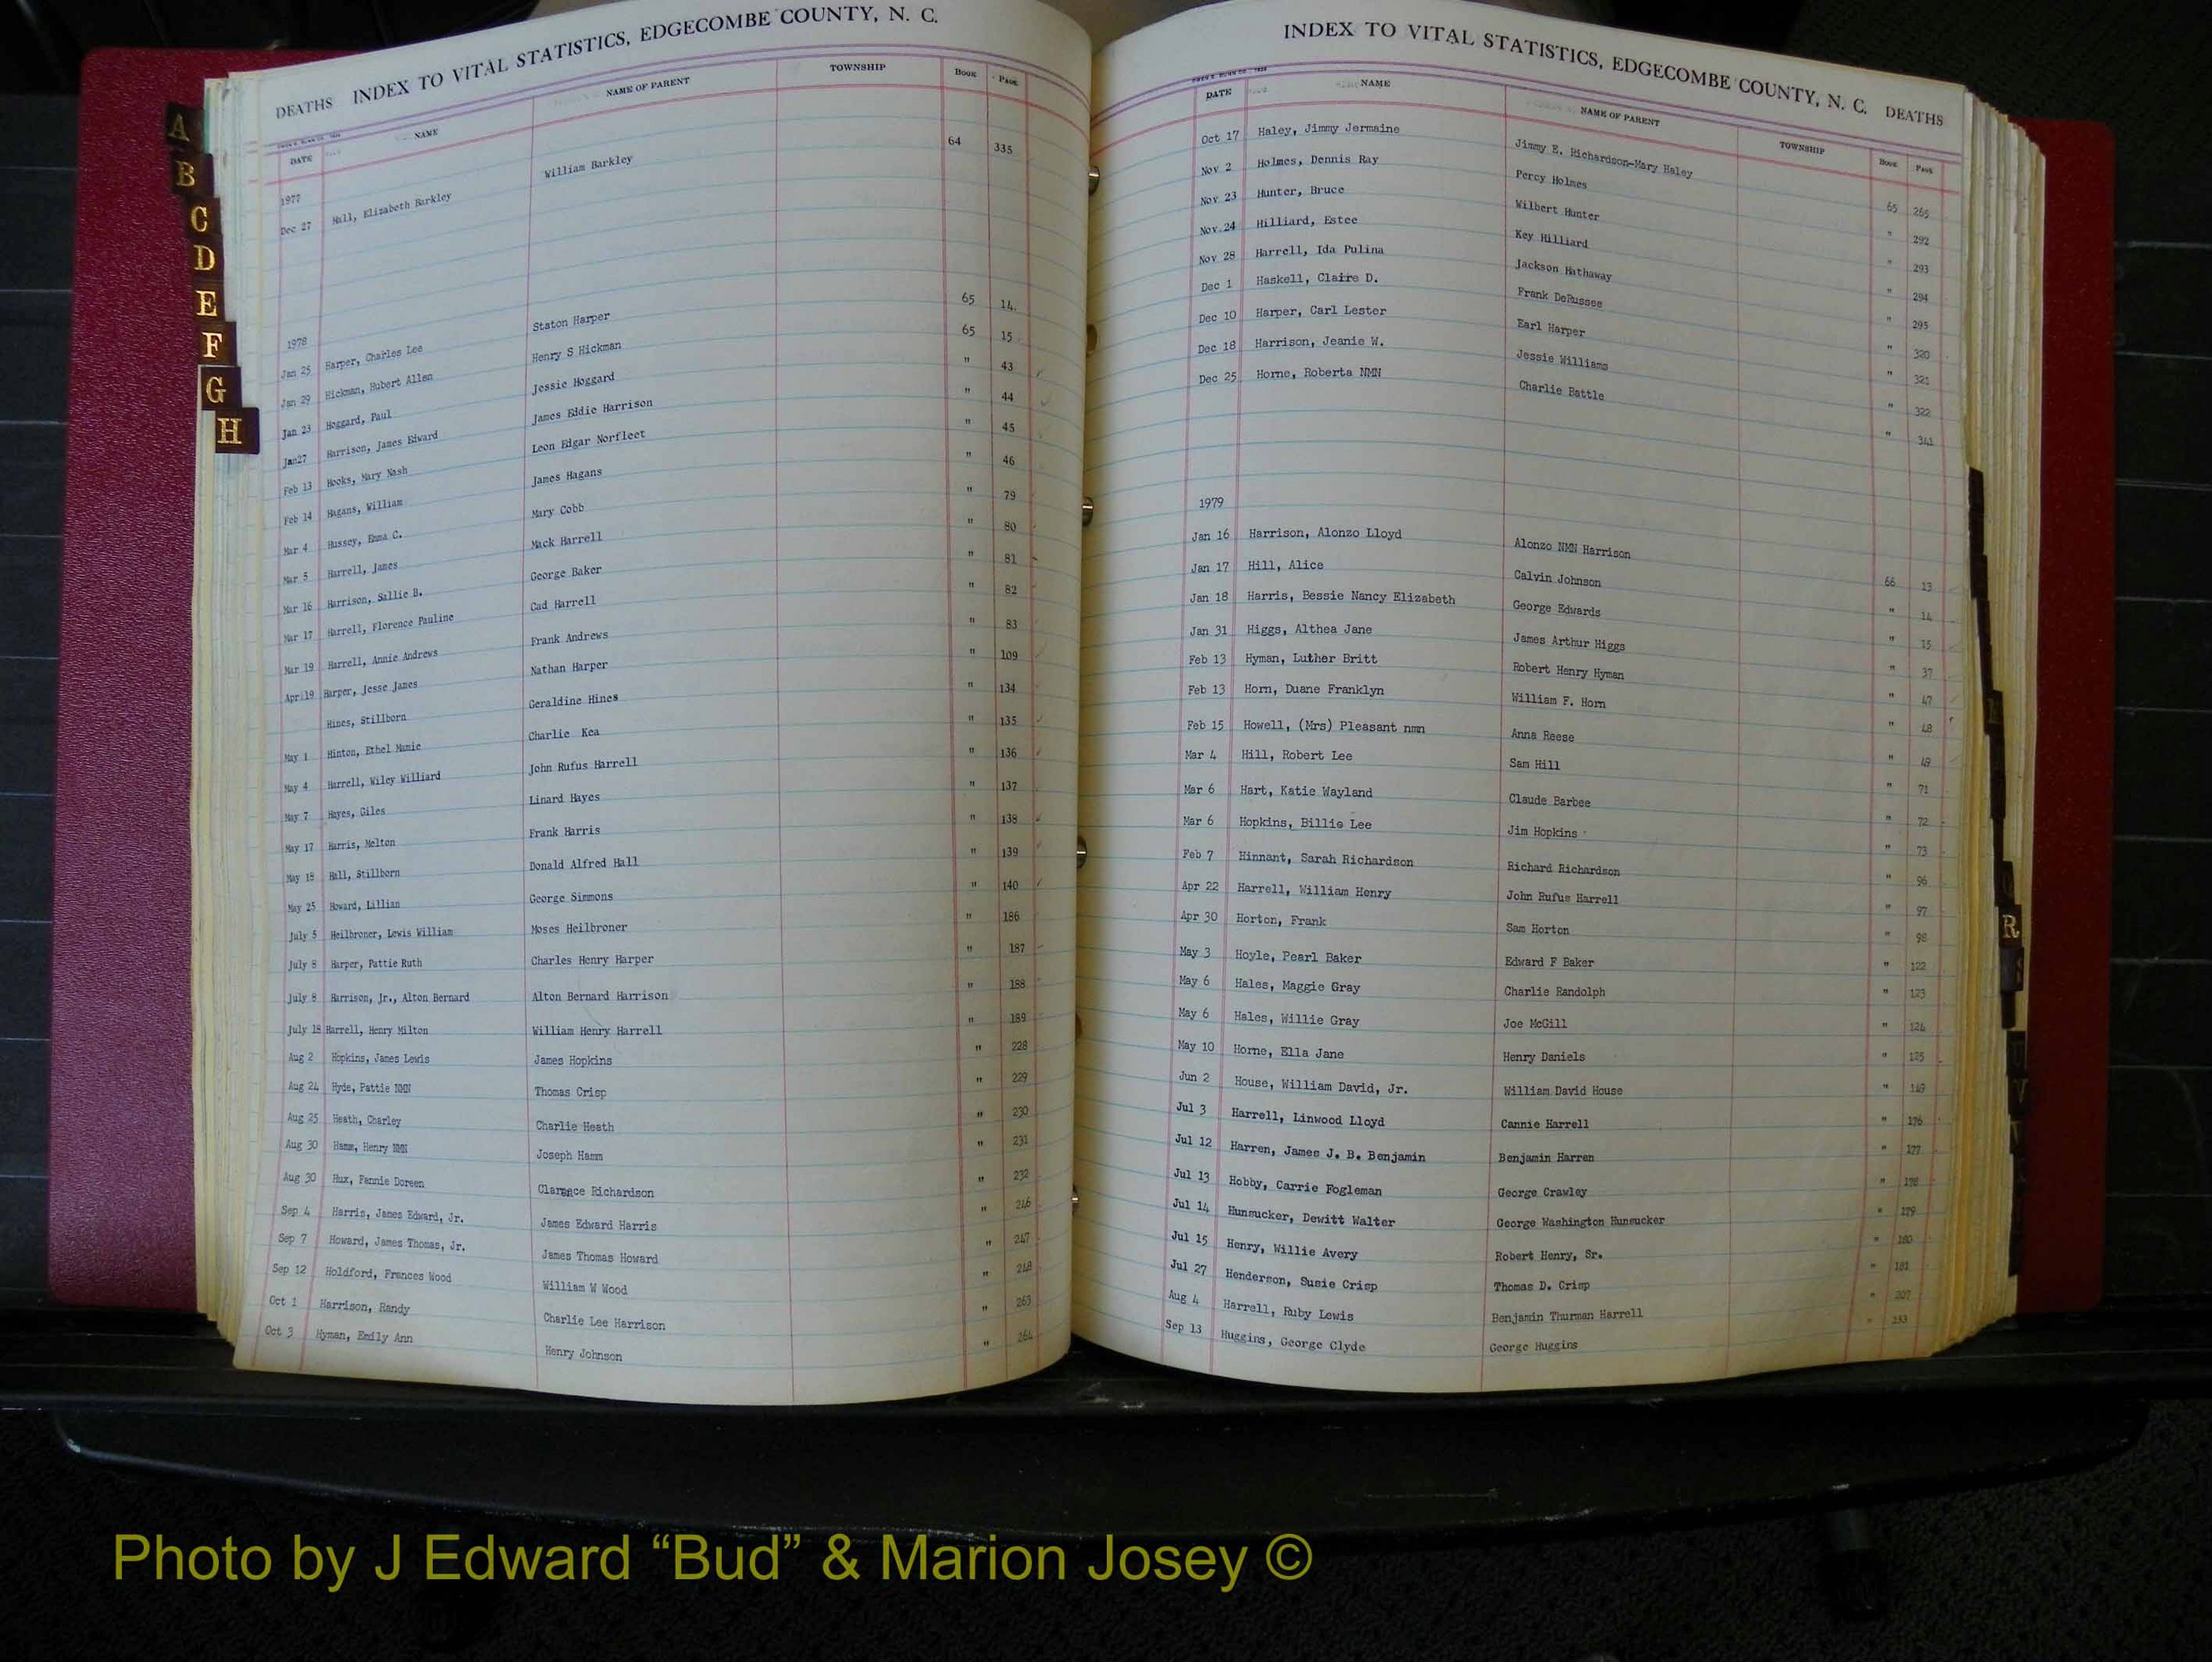 DEATHS INDEX TO VITAL STATISTICS, EDGECOMBE COUNTY, N. C.
DATE NAME NAME OF PARENT TOWNSHIP BOOK PAGE
1977
Dec 27 Hall, Elizabeth Barkley William Barkley 64 335
1978
Jan 25 Harper, Charles Lee Staton Harper 65 14
Jan 29 Hickman, Hubert Allen Henry S Hickman 65 15
Jan 23 Hoggard, Paul Jessie Hoggard " 43
Jan27 Harrison, James Edward James Eddie Harrison " 44
Feb 13 Hooks, Mary Nash Leon Edgar Norfleet " 45
Feb 14 Hagans, William James Hagans " 46
Mar 4 Hussey, Emma C. Mary Cobb " 79
Mar 5 Harrell, James Mack Harrell " 80
Mar 16 Harrison, Sallie B. George Baker " 81
Mar 17 Harrell, Florence Pauline Cad Harrell " 82
Mar 19 Harrell, Annie Andrews Frank Andrews " 83
April19 Harper, Jesse James Nathan Harper " 109
Hines, Stillborn Geraldine Hines " 134
May 1 Hinton, Ethel Mamie Charlie Kea " 135
May 4 Harrell, Wiley Williard John Rufus Harrell " 136
May 7 Hayes, Giles Linard Hayes " 137
May 17 Harris, Melton Frank Harris " 138
May 18 Hall, Stillborn Donald Alfred Hall " 139
May 25 Howard, Lillian George Simmons " 140
July 5 Heilbroner, Lewis William Moses Heilbroner " 186
July 8 Harper, Pattie Ruth Charles Henry Harper " 187
July 8 Harrison, Jr., Alton Bernard Alton Bernard Harrison " 188
July 18 Harrell, Henry Milton William Henry Harrell " 189
Aug 2 Hopkins, James Lewis James Hopkins " 228
Aug 24 Hyde, Pattie NMN Thomas Crisp " 229
Aug 25 Heath, Charley Charlie Heath " 230
Aug 30 Hamm, Henry NMN Joseph Hamm " 231
Aug 30 Hux, Fannie Doreen Clarence Richardson " 232
Sep 4 Harris, James Edward, Jr. James Edward Harris " 246
Sep 7 Howard, James Thomas, Jr. James Thomas Howard " 247
Sep 12 Holdford, Frances Wood William W Wood " 248
Oct 1 Harrison, Randy Charlie Lee Harrison " 263
Oct 3 Hyman, Emily Ann Henry Johnson " 264
A
B
C
D
E
F
G
H
INDEX TO VITAL STATISTICS, EDGECOMBE COUNTY, N. C. DEATHS
DATE NAME NAME OF PARENT TOWNSHIP BOOK PAGE
Oct 17 Haley, Jimmy Jermaine Jimmy E. Richardson-Mary Haley 65 265
Nov 2 Holmes, Dennis Ray Percy Holmes " 292
Nov 23 Hunter, Bruce Wilbert Hunter " 293
Nov.24 Hilliard, Estee Key Hilliard " 294
Nov 28 Harrell, Ida Pulina Jackson Hathaway " 295
Dec 1 Haskell, Claire D. Frank DeRussee " 320
Dec 10 Harper, Carl Lester Earl Harper " 321
Dec 18 Harrison, Jeanie W. Jessie Williams " 322
Dec 25 Horne, Roberta NMN Charlie Battle " 341
1979
Jan 16 Harrison, Alonzo Lloyd Alonzo NMN Harrison 66 13
Jan 17 Hill, Alice Calvin Johnson " 14
Jan 18 Harris, Bessie Nancy Elizabeth George Edwards " 15
Jan 31 Higgs, Althea Jane James Arthur Higgs " 37
Feb 13 Hyman, Luther Britt Robert Henry Hyman " 47
Feb 13 Horn, Duane Franklyn William F. Horn " 48
Feb 15 Howell, (Mrs) Pleasant nmn Anna Reese " 49
Mar 4 Hill, Robert Lee Sam Hill " 71
Mar 6 Hart, Katie Wayland Claude Barbee " 72
Mar 6 Hopkins, Billie Lee Jim Hopkins " 73
Feb 7 Hinnant, Sarah Richardson Richard Richardson " 96
Apr 22 Harrell, William Henry John Rufus Harrell " 97
Apr 30 Horton, Frank Sam Horton " 98
May 3 Hoyle, Pearl Baker Edward F Baker " 122
May 6 Hales, Maggie Gray Charlie Randolph " 123
May 6 Hales, Willie Gray Joe McGill " 124
May 10 Horne, Ella Jane Henry Daniels " 125
Jun 2 House, William David, Jr. William David House " 149
Jul 3 Harrell, Linwood Lloyd Cannie Harrell " 176
Jul 12 Harren, James J. B. Benjamin Benjamin Harren " 177
Jul 13 Hobby, Carrie Fogleman George Crawley " 178
Jul 14 Hunsucker, Dewitt Walter George Washington Hunsucker " 179
Jul 15 Henry, Willie Avery Robert Henry, Sr. " 180
Jul 27 Henderson, Susie Crisp Thomas D. Crisp " 181
Aug 4 Harrell, Ruby Lewis Benjamin Thurman Harrell " 207
Sep 13 Huggins, George Clyde George Huggins " 233
R
Photo by J Edward “Bud” & Marion Josey ©